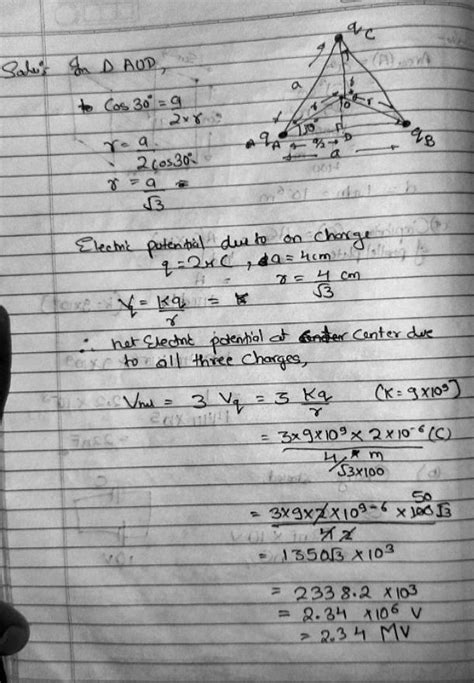 Solu: In Δ AOD,
Cos 30° = a / 2 x r
r = a / 2 cos 30°
r = a / √3
qC
a
r
r
O
30°
qA
A
a/2
D
qB
a
Electric potential due to on charge
q = 2μC , a = 4cm
r = 4 / √3 cm
Vq = Kq / r =
∴ net Electric potential at center due
to all three charges,
Vnet = 3 Vq = 3 Kq / r (K = 9 x 10⁹)
= 3 x 9 x 10⁹ x 2 x 10⁻⁶ (C) / 4 / √3 x 100 m
= 3 x 9 x 2 x 10⁹⁻⁶ x 100 √3 / 4 2
50
= 1350√3 x 10³
= 2338.2 x 10³
= 2.34 x 10⁶ V
= 2.34 MV